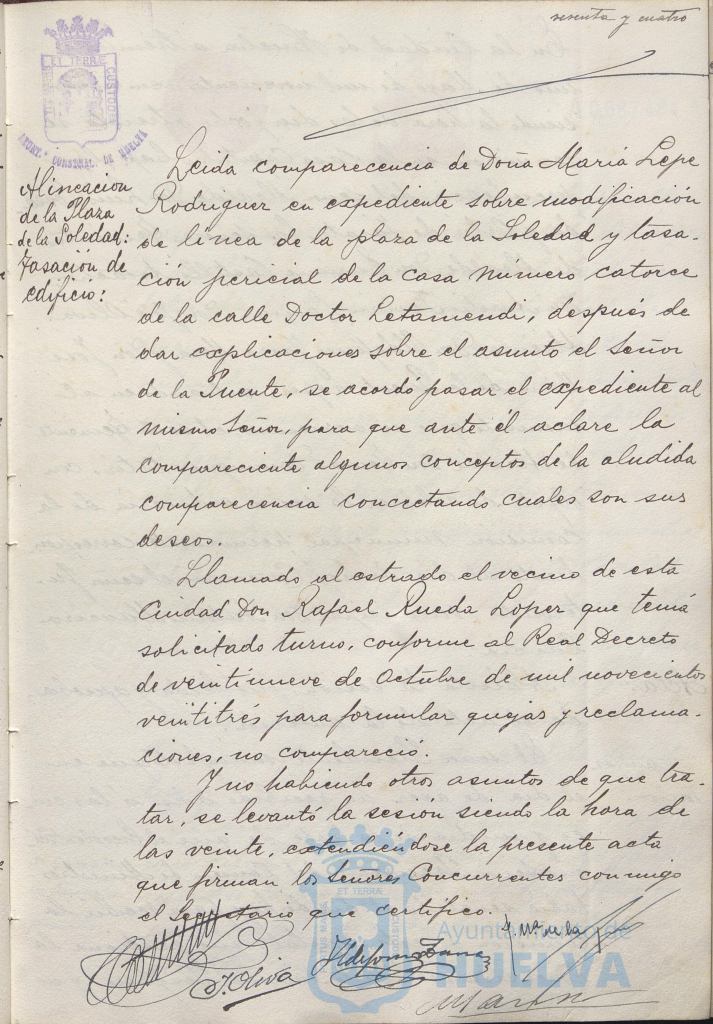 sesenta y cuatro
ET TERRÆ
CUSTODIA
AYUNT.º CONSNAL. DE HUELVA
Alineacion
de la Plaza
de la Soledad:
Tasación de
edificio:
Leida comparecencia de Doña Maria Lepe
Rodriguez en expediente sobre modificación
de línea de la plaza de la Soledad y tasa-
ción pericial de la casa número catorce
de la calle Doctor Letamendi, después de
dar explicaciones sobre el asunto el Señor
de la Puente, se acordó pasar el expediente al
mismo Señor, para que ante él aclare la
compareciente algunos conceptos de la aludida
comparecencia concectando cuales son sus
deseos.
Llamado al estrado el vecino de esta
Ciudad Don Rafael Rueda Lopez que tenia
solicitado turno, conforme al Real Decreto
de veintinueve de Octubre de mil novecientos
veintitrés para formular quejas y reclama-
ciones, no compareció.
Y no habiendo otros asuntos de que tra-
tar, se levantó la sesión siendo la hora de
las veinte, extendiéndose la presente acta
que firman los Señores Concurrentes conmigo
el Secretario que certifico.
J. Oliva
Ildefonso
Jª Mª de la
ET TERRÆ
Ayuntamiento de
HUELVA